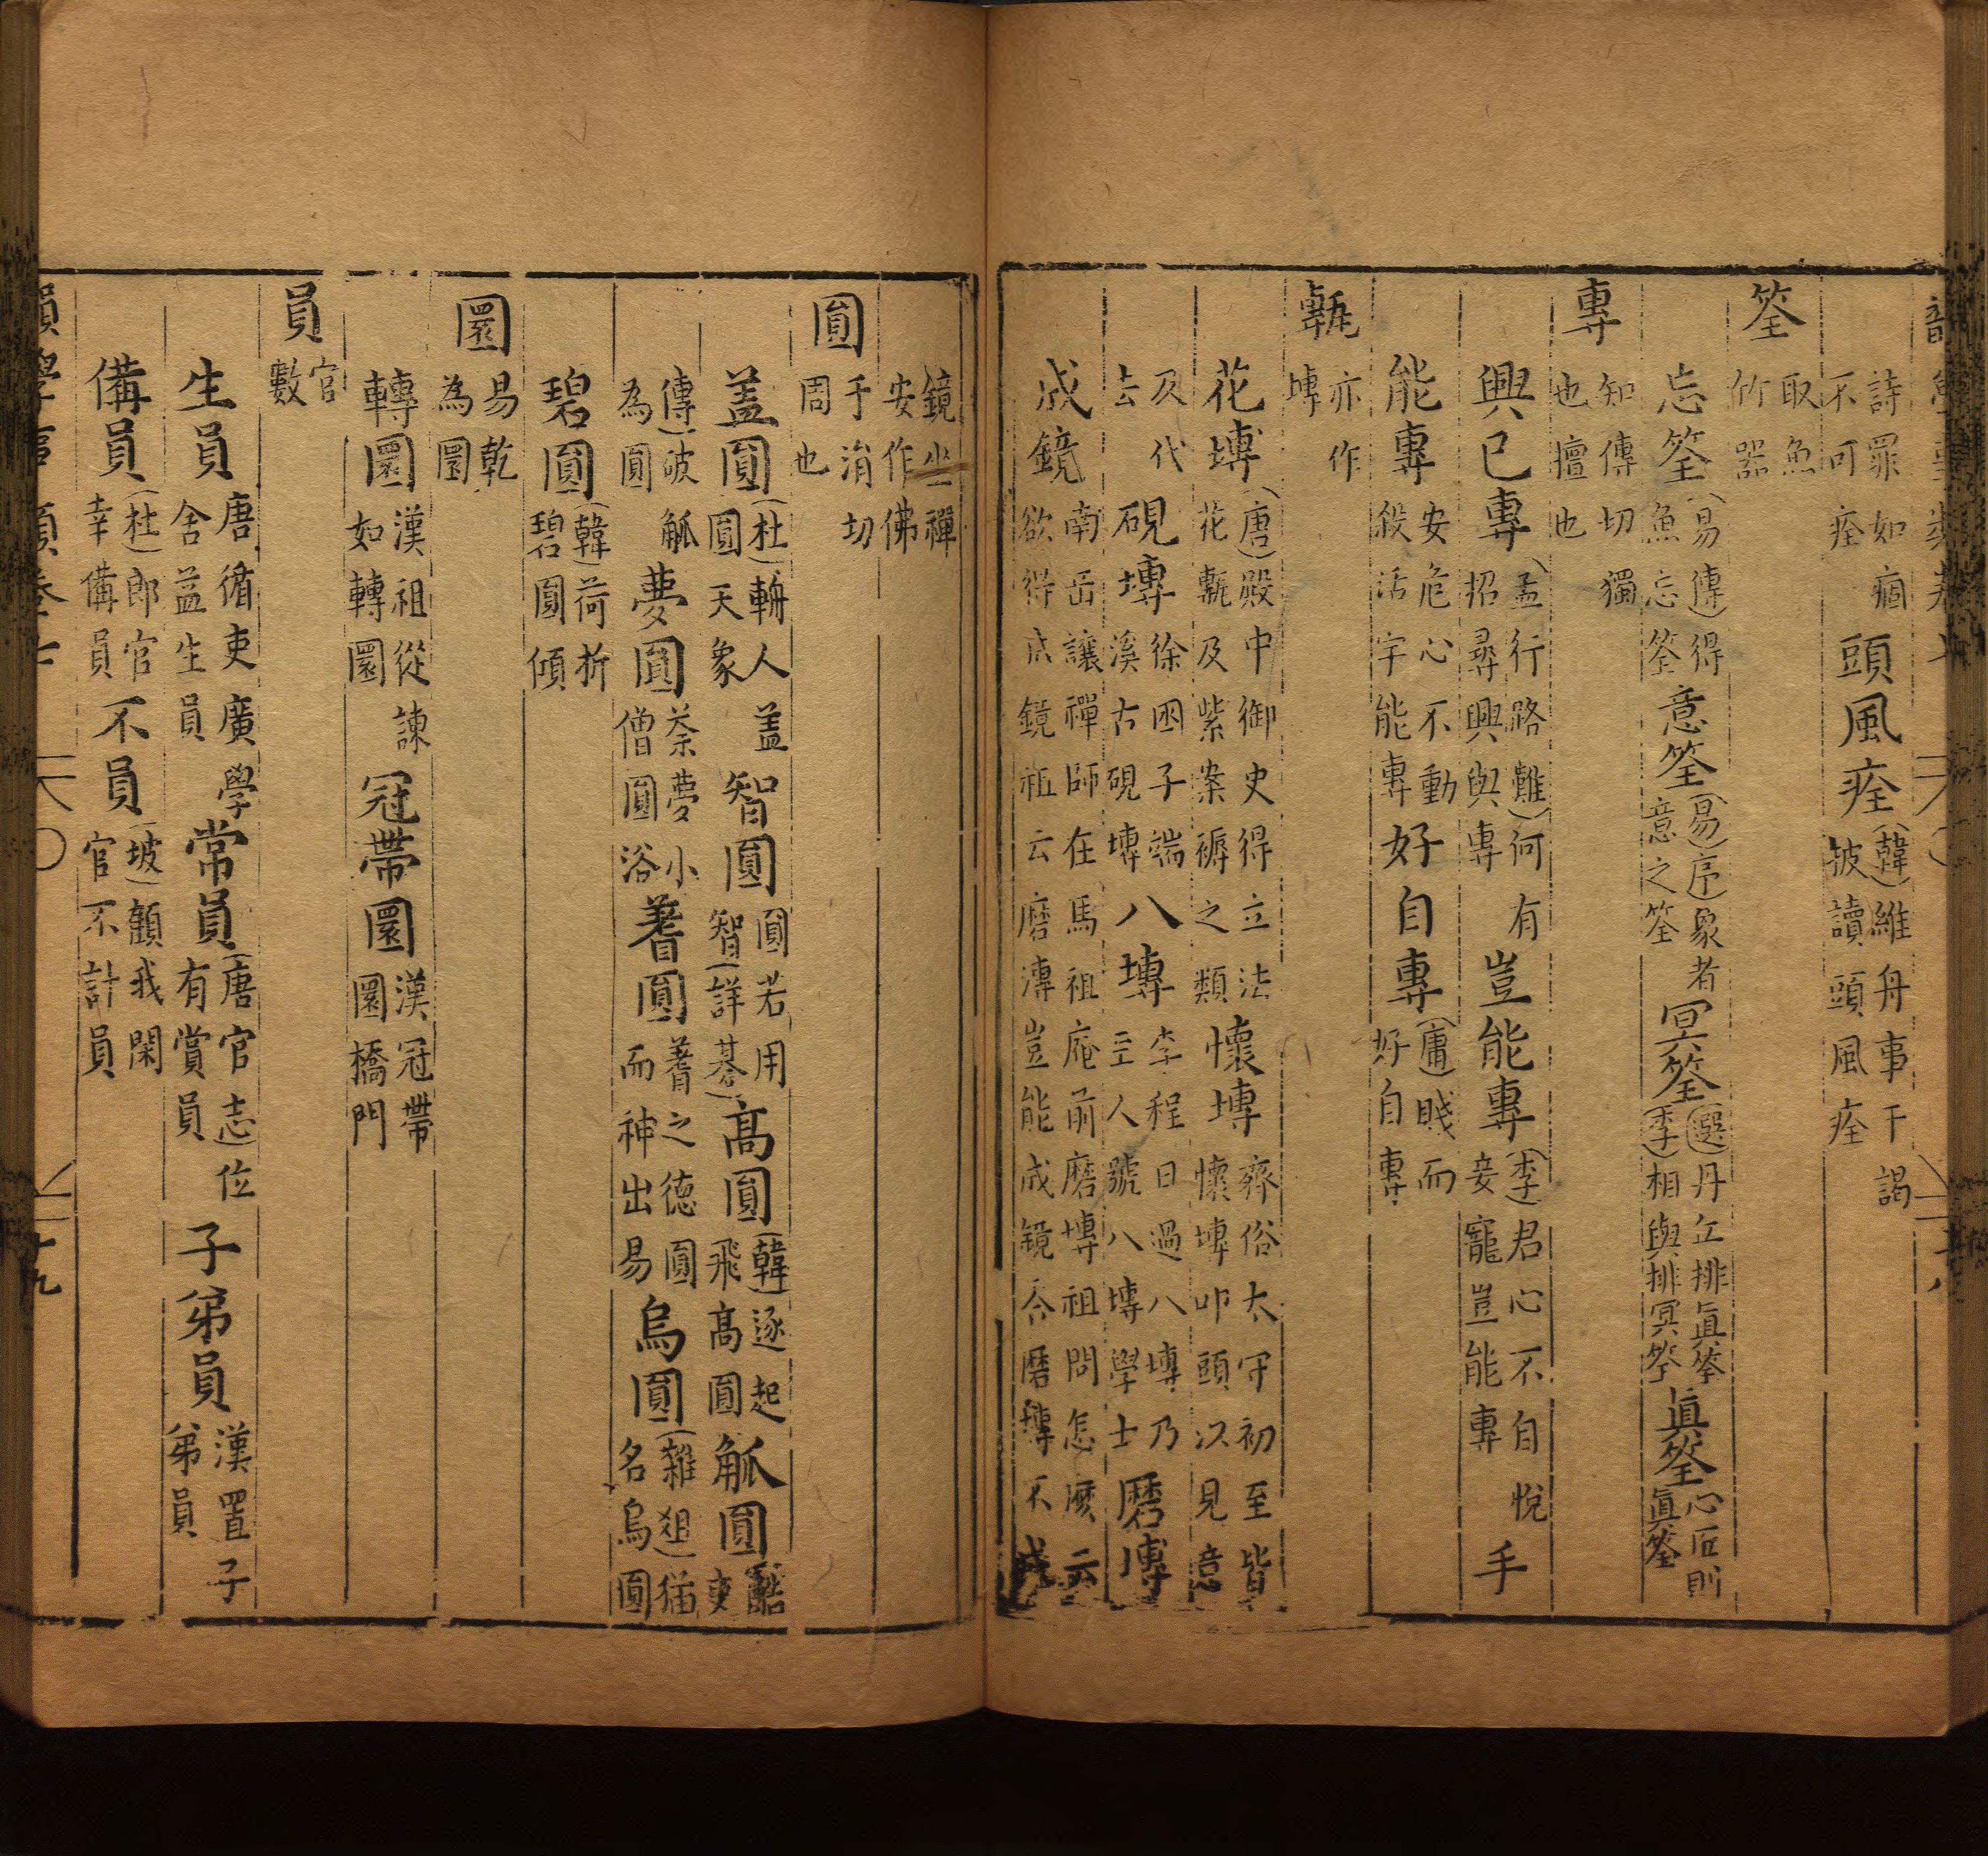 詩罪如痼不可痊　頭風痊（韓）維舟事干謁披讀頭風痊
筌　取魚竹器
忘筌（易傳）得魚忘筌　意筌（易序）象者意之筌　冥筌（選）丹丘排眞筌（季）相與排冥筌　眞筌心匠則眞筌
專　知傳切獨也擅也
興已專（孟）行路難何有招尋興與專　豈能專（李）君心不自悅妾寵豈能專　手
能專　安危心不動殺活宇能專　好自專（庸）賤而好自專
甎　亦作塼
花塼（唐）殿中御史得立法花甎及紫案褥之類　懷塼齊俗太守初至皆懷塼叩頭以見意
及代去　硯塼徐困子端溪古硯塼　八塼李程日過八塼乃至人號八塼學士　磨塼
成鏡　南岳讓禪師在馬祖庵前磨塼祖問怎麽云欲得成鏡祖云磨塼豈能成鏡今磨塼不成
鏡坐禪安作佛
圓　于涓切周也
盖圓（杜）輈人盖圓天象　智圓圓若用智（詳棊）　高圓（韓）逐起飛高圓　觚圓
傳破觚為圓　夢圓荼夢小僧圓浴　蓍圓蓍之德圓而神出易　烏圓（雜俎）猫名烏圓
碧圓（韓）荷折碧圓傾
圜　易乾為圜
轉圜　漢祖從諫如轉圜　冠帶圜漢冠帶圜橋門
員　官數
生員　唐循吏廣學舍益生員　常員（唐官志）位有賞員　子弟員漢置子弟員
備員（杜）郎官幸備員　不員（坡）顧我閑官不計員